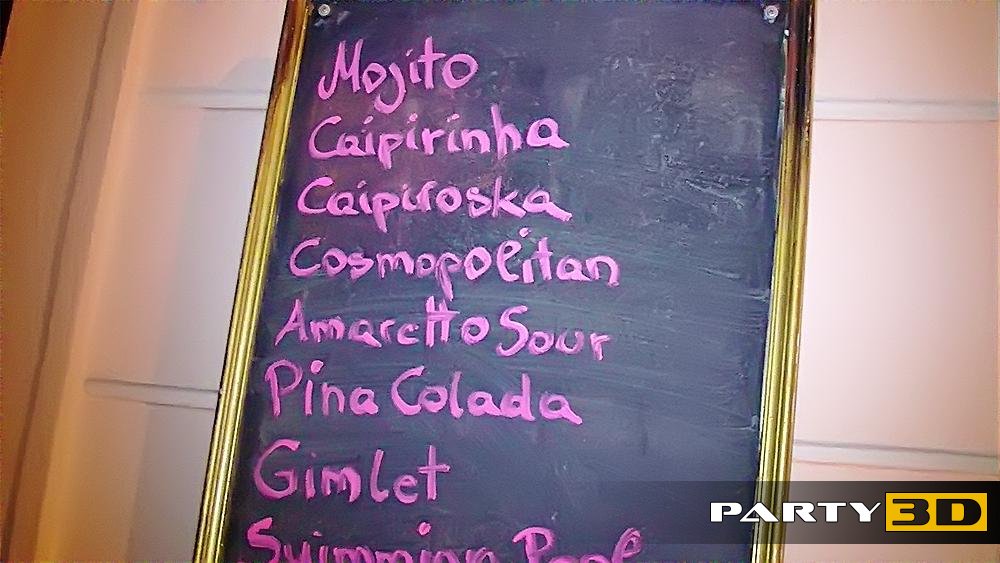 Mojito
Caipirinha
Caipiroska
Cosmopolitan
Amaretto Sour
Pina Colada
Gimlet
Swimming Pool
PARTY 3D